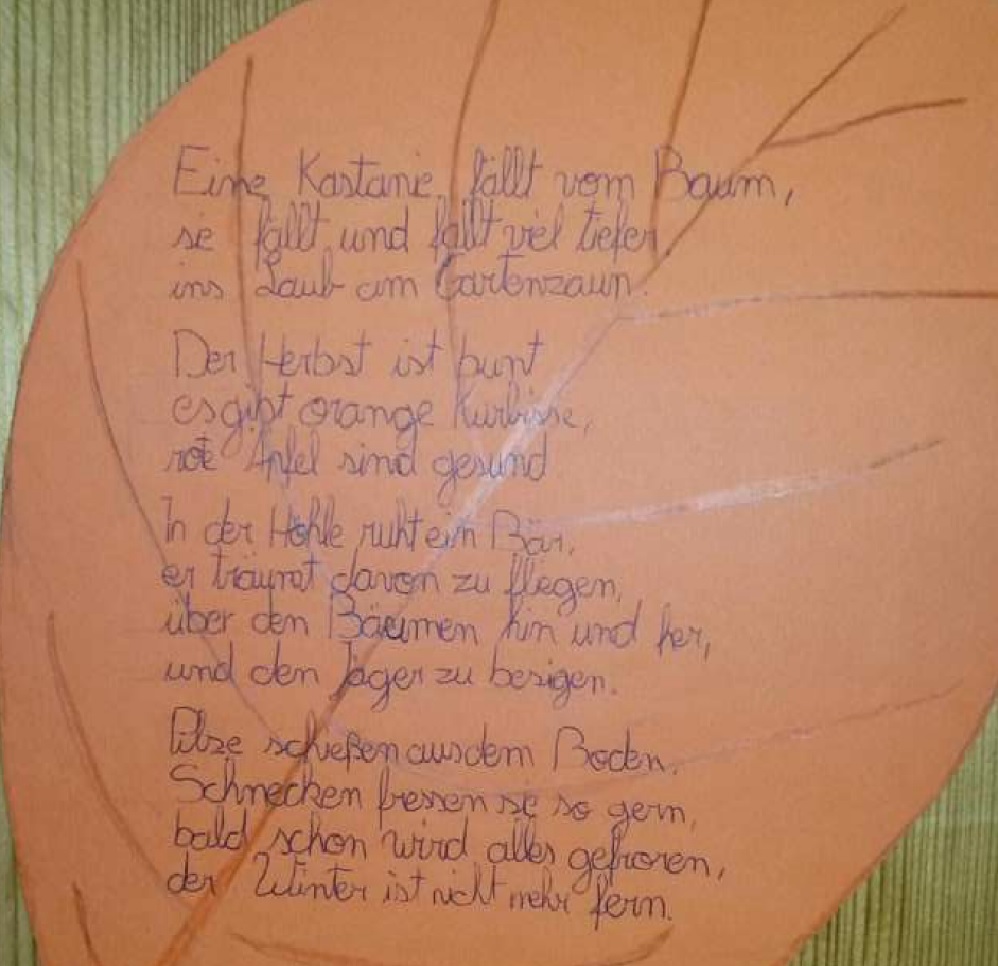 Eine Kastanie fällt vom Baum,
sie fällt und fällt viel tiefer
ins Laub am Gartenzaun.
Der Herbst ist bunt
es gibt orange Kürbisse,
rote Äpfel sind gesund
In der Höhle ruht ein Bär,
er träumt davon zu fliegen,
über den Bäumen hin und her,
und den Jäger zu besigen.
Pilze schießen aus dem Boden.
Schnecken fressen sie so gern,
bald schon wird alles gefroren,
der Winter ist nicht mehr fern.